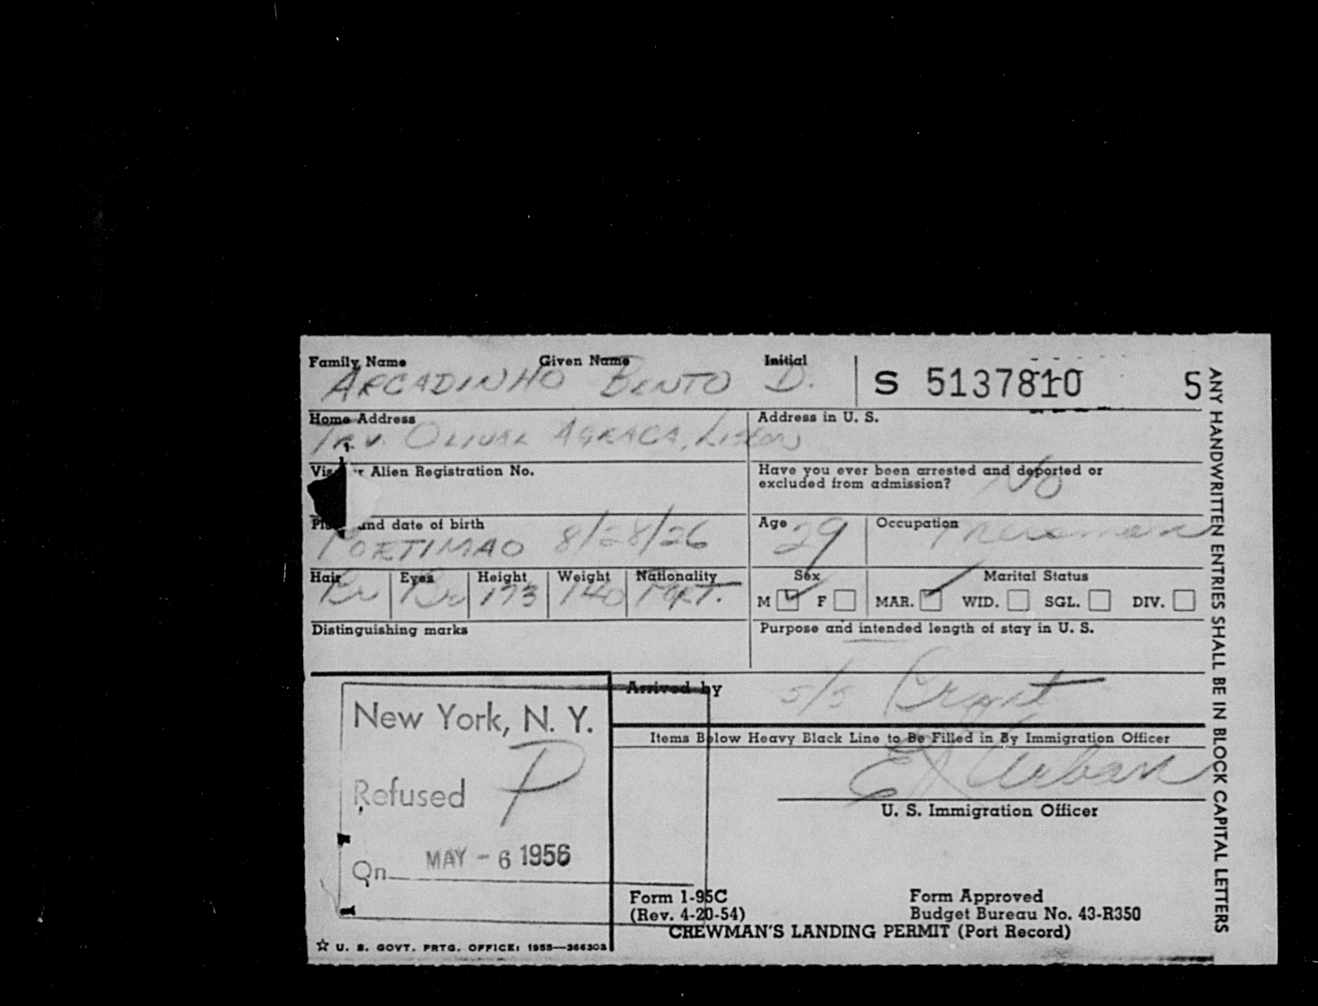 Family Name Given Name Initial
ARCADINHO BENTO D. S 5137810 5
Home Address Address in U. S.
TRV. OLIVAL AGRACA, Lisbon
Alien Registration No. Have you ever been arrested and deported or
excluded from admission? No
and date of birth Age Occupation
PORTIMAO 8/28/26 29 Fireman
Hair Eyes Height Weight Nationality Sex Marital Status
Br Br 173 140 PORT. M F MAR. WID. SGL. DIV.
Distinguishing marks Purpose and intended length of stay in U. S.
Arrived by s/s
New York, N. Y.
Items Below Heavy Black Line to Be Filled in By Immigration Officer
Refused P
E J Urban
U. S. Immigration Officer
On MAY - 6 1956
Form 1-95C Form Approved
(Rev. 4-20-54) Budget Bureau No. 43-R350
CREWMAN'S LANDING PERMIT (Port Record)
☆ U. S. GOVT. PRTG. OFFICE: 1955—366303
ANY HANDWRITTEN ENTRIES SHALL BE IN BLOCK CAPITAL LETTERS